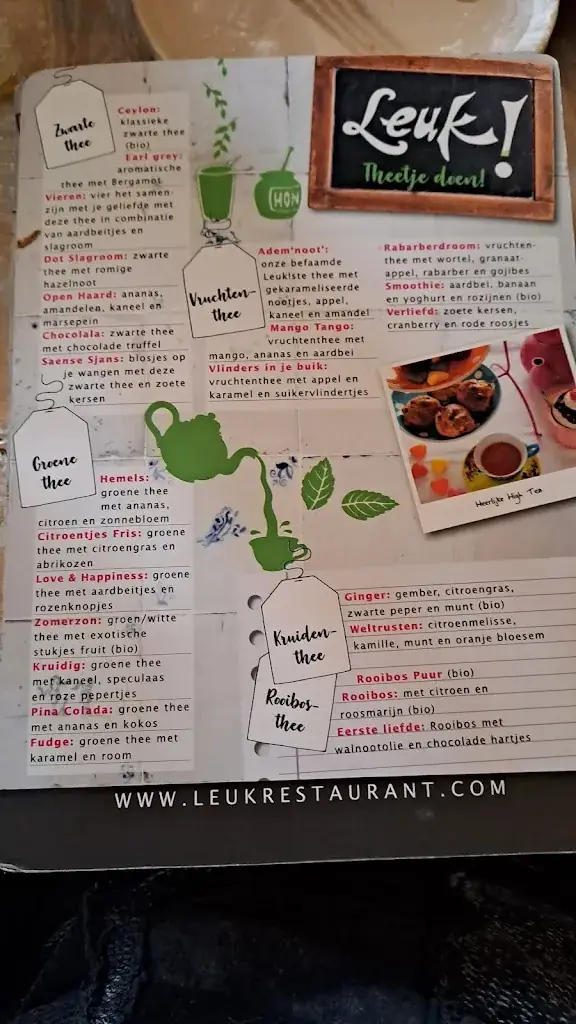 Leuk!
Theetje doen!
Zwarte
thee
Ceylon:
klassieke
zwarte thee
(bio)
Earl grey:
aromatische
thee met Bergamot
Vieren: vier het samen-
zijn met je geliefde met
deze thee in combinatie
van aardbeitjes en
slagroom
Dot Slagroom: zwarte
thee met romige
hazelnoot
Open Haard: ananas,
amandelen, kaneel en
marsepein
Chocolala: zwarte thee
met chocolade truffel
Saense Sjans: blosjes op
je wangen met deze
zwarte thee en zoete
kersen
HON
Vruchten-
thee
Adem'noot':
onze befaamde
Leuk!ste thee met
gekarameliseerde
nootjes, appel,
kaneel en amandel
Mango Tango:
vruchtenthee met
mango, ananas en aardbei
Vlinders in je buik:
vruchtenthee met appel en
karamel en suikervlindertjes
Rabarberdroom: vruchten-
thee met wortel, granaat-
appel, rabarber en gojibes
Smoothie: aardbei, banaan
en yoghurt en rozijnen (bio)
Verliefd: zoete kersen,
cranberry en rode roosjes
Heerlijke High Tea
Groene
thee
Hemels:
groene thee
met ananas,
citroen en zonnebloem
Citroentjes Fris: groene
thee met citroengras en
abrikozen
Love & Happiness: groene
thee met aardbeitjes en
rozenknopjes
Zomerzon: groen/witte
thee met exotische
stukjes fruit (bio)
Kruidig: groene thee
met kaneel, speculaas
en roze pepertjes
Pina Colada: groene thee
met ananas en kokos
Fudge: groene thee met
karamel en room
Kruiden-
thee
Ginger: gember, citroengras,
zwarte peper en munt (bio)
Weltrusten: citroenmelisse,
kamille, munt en oranje bloesem
Rooibos-
thee
Rooibos Puur (bio)
Rooibos: met citroen en
roosmarijn (bio)
Eerste liefde: Rooibos met
walnootolie en chocolade hartjes
WWW.LEUKRESTAURANT.COM